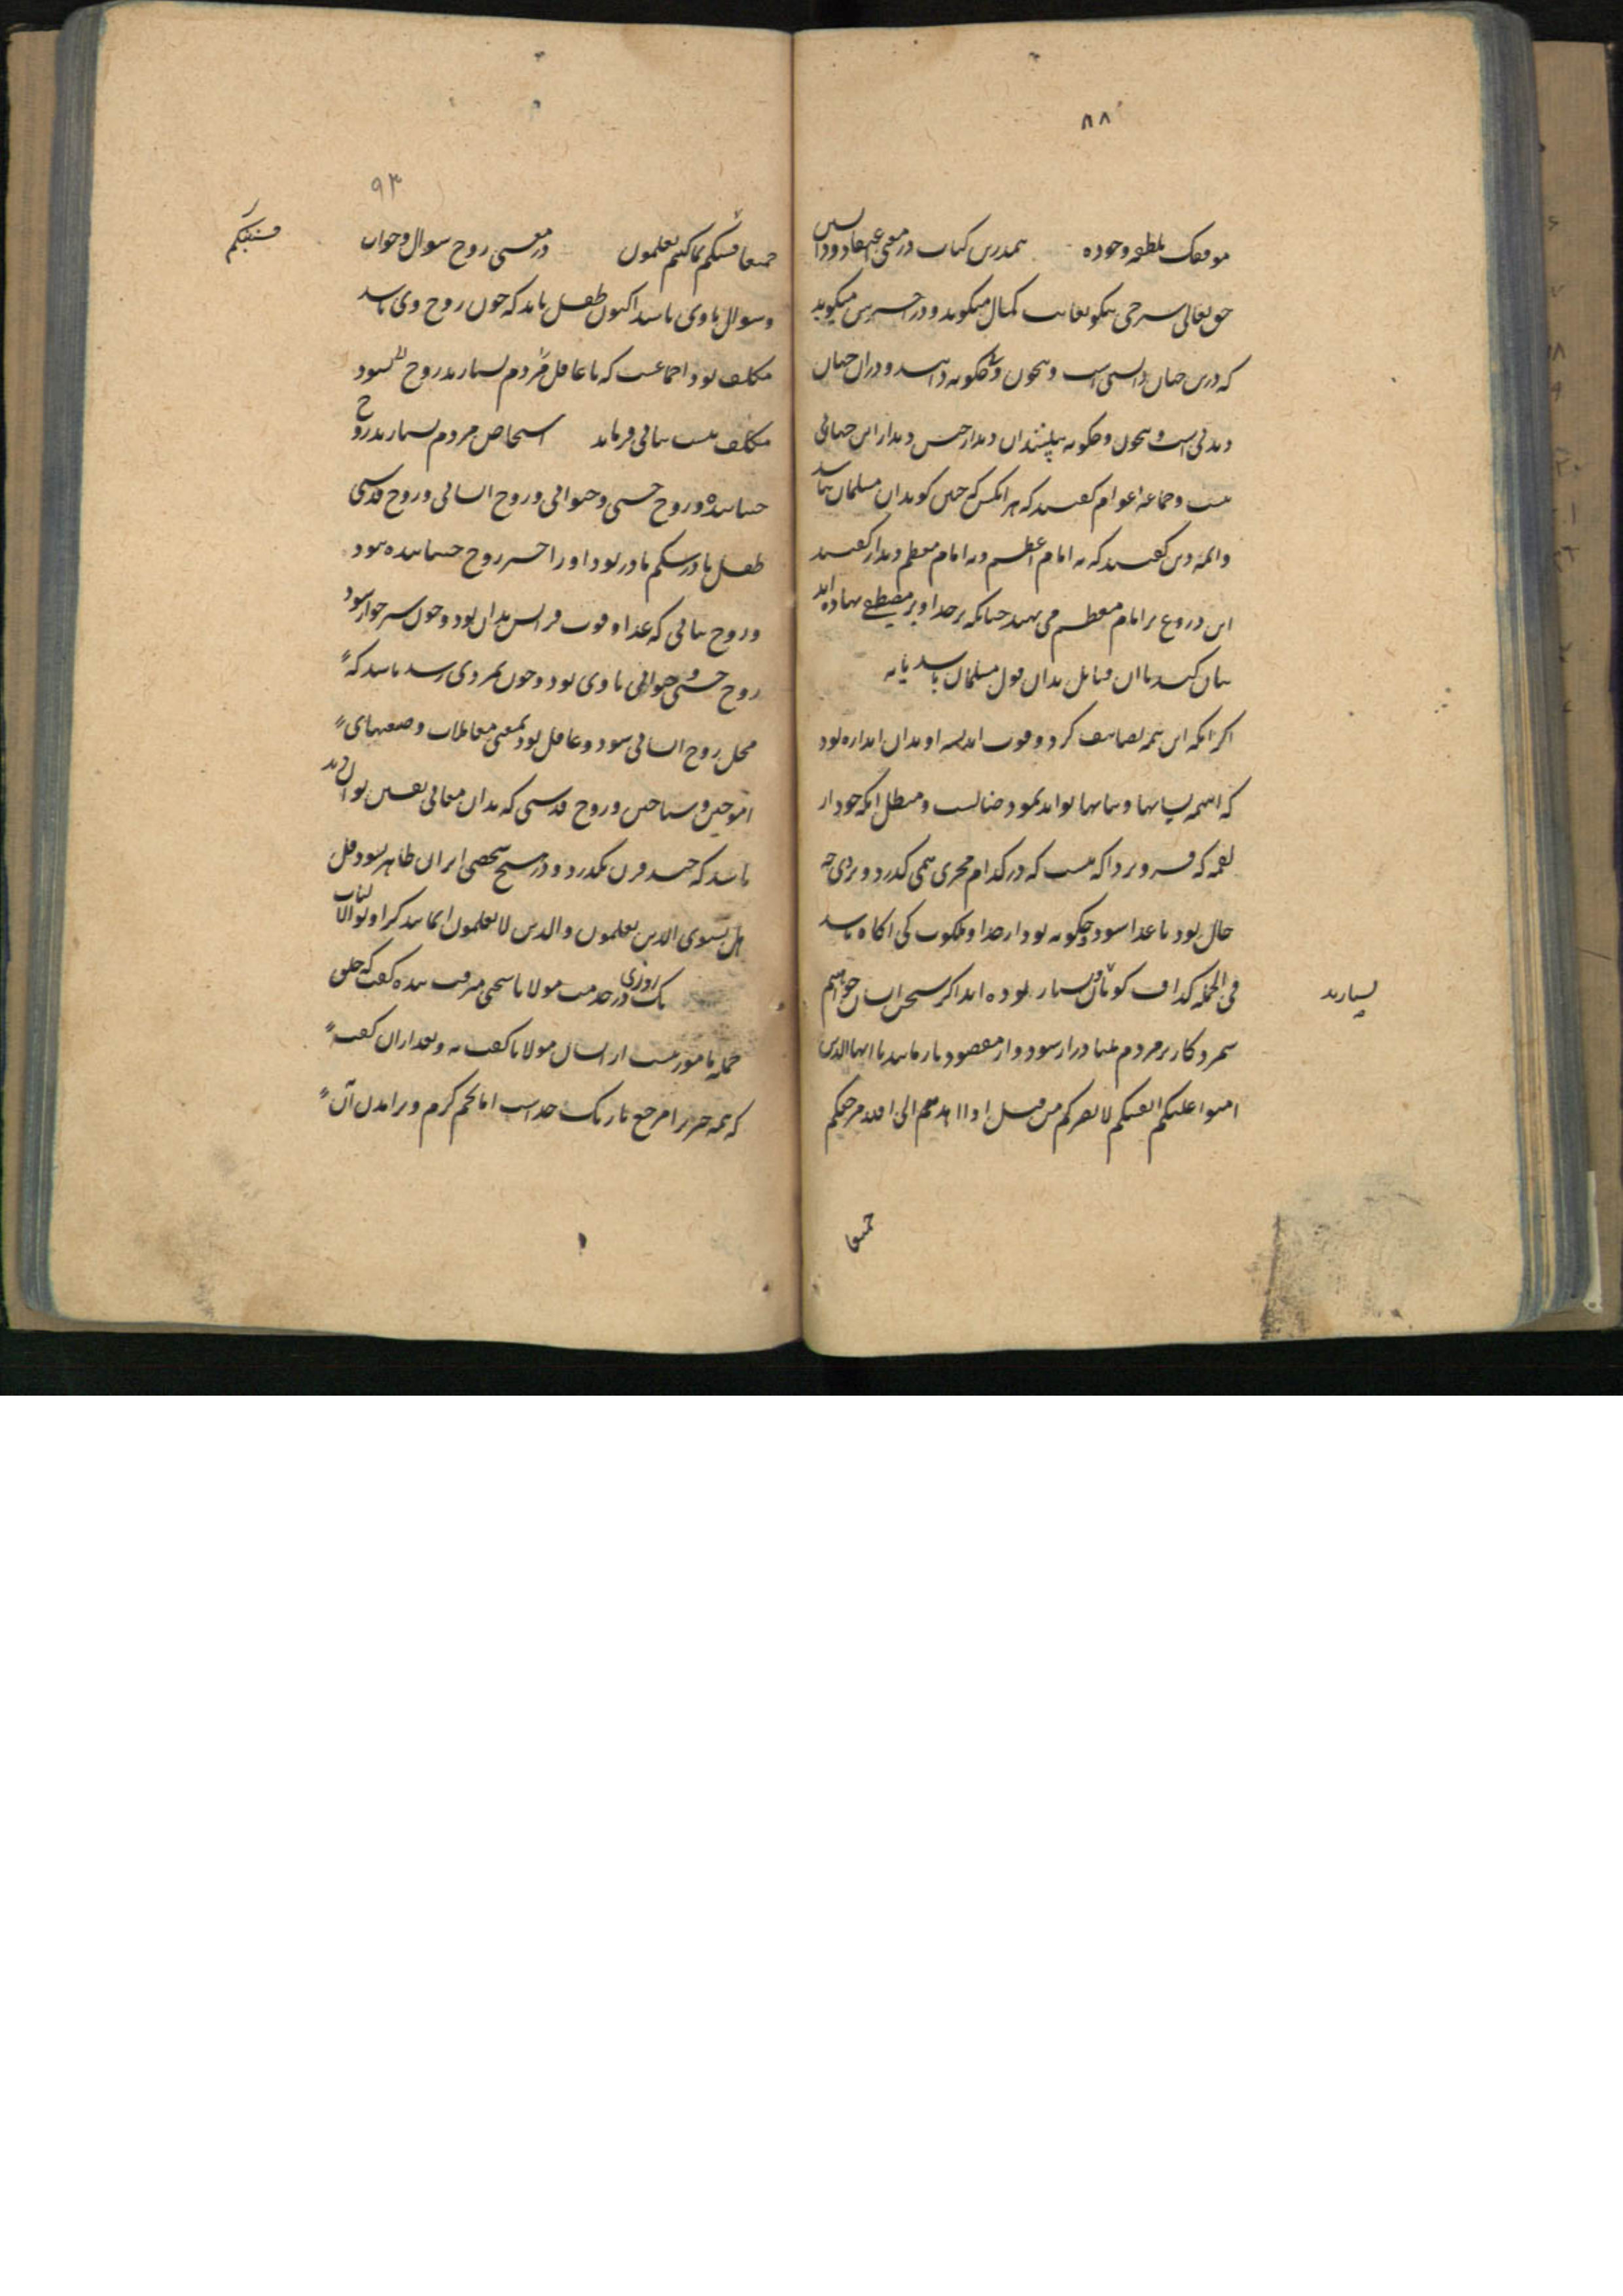 ۸۸
موفقک بلطفه وجوده همدرین کتاب در معنی اعتقاد و دانستن
حق تعالی شرحی نیکو بغایت کمال میگوید و در آخرین میگوید
که درین جهان دانستنی است و بیچون و چگونه دانند و در آن جهان
دیدنی است و بیچون و چگونه بینندش آن دیدار جنس دیدار این جهانی
نیست و جماعه اعوام گفتند که هر آنکس که چنین گوید آن مسلمان نباشد
وائمه دین گفتند که نه امام اعظم و نه امام معظم دیدار گفتند
این دروغ بر امام معظم می نهند چنانکه بر خدا و بر مصطفی نهاده اند
بیان کنید تا آن قایل بدان قول مسلمان باشد یا نه
اگر آنکه این همه تصانیف کرد و قوت اندیشه او بدان اندازه بود
که اینهمه بیانها و نماینها تواند نمود
لقمه که فرو برد آگه نیست که در کدام مجری همی گذرد و بر وی چه
حال بود تا غذا شود و چگونه بود از خدا و ملکوت کی آگاه باشد
فی الجمله گزاف گویان بسیار بوده اند اگر سخن ایشان خواهیم
شمرد کار بر مردم دراز شود و از مقصود باز مانند یا ایها الذین
امنوا علیکم انفسکم لا یضرکم من ضل اذا اهتدیتم الی الله مرجعکم
بسیارند
جمیعا
۹۳
جمیعا فینبئکم بما کنتم تعلمون در معنی روح سوال و جواب
فینبئکم
و سوال با وی باشد اکنون طفل باید که چون روح وی باشد
مکلف بود اجماعست که تا عاقل نشود
مکلف نیست بیانی فرماید اشخاص مردم بسیارند روح
جنباننده و روح حسی و حیوانی و روح انسانی و روح قدسی
طفل تا در شکم مادر بود او را جز روح جنباننده نبود
و روح نباتی که غذا و قوت بدان بود و چون شیر خواره شود
روح حسی و حیوانی با وی بود و چون بمردی رسد باشد که
محل روح انسانی شود و عاقل بود بمعنی معاملات و صنعتهای
آموختن و شناختن و روح قدسی که بدان معانی یقین تواند دید
باشد که چند قرن بگذرد و در هیچ شخصی اثر آن ظاهر نشود قل
هل یستوی الذین یعلمون والذین لا یعلمون انما یتذکر اولوا الالباب
یک روزی در خدمت مولانا سخنی میرفت بنده گفت که خلق
جمله مامورست از ایشان مولانا گفت نه و بعد از آن گفت
که همه چیز را مرجع تا بیک خداست اما تخم کرم و بر آمدن آن